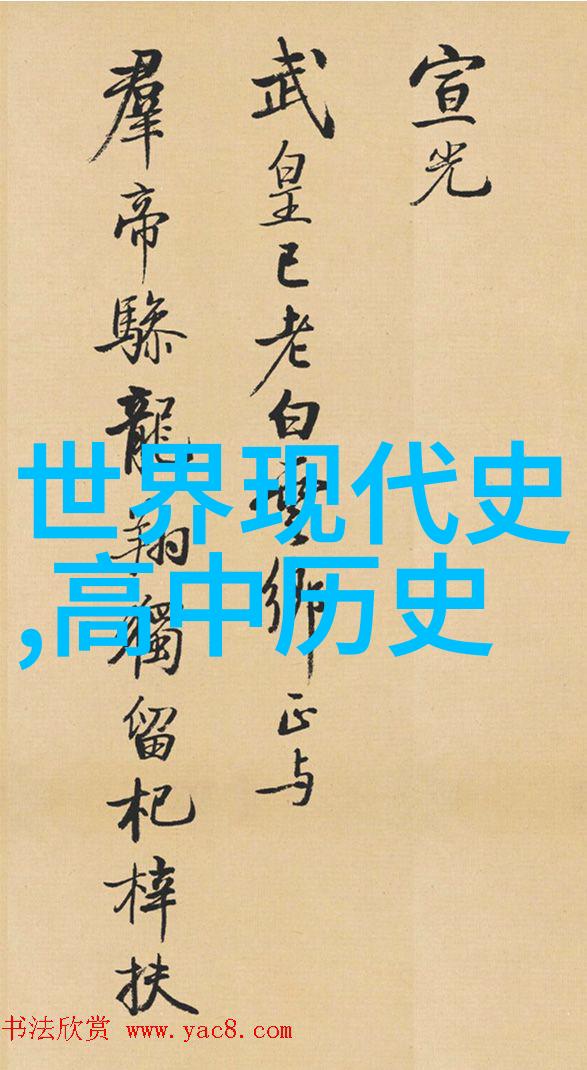 宣光
武皇已老白雲鄉正与
羣帝驂龍翔獨留杞梓扶
世界现代史
,高中历史
书法欣赏 www.yac8.com